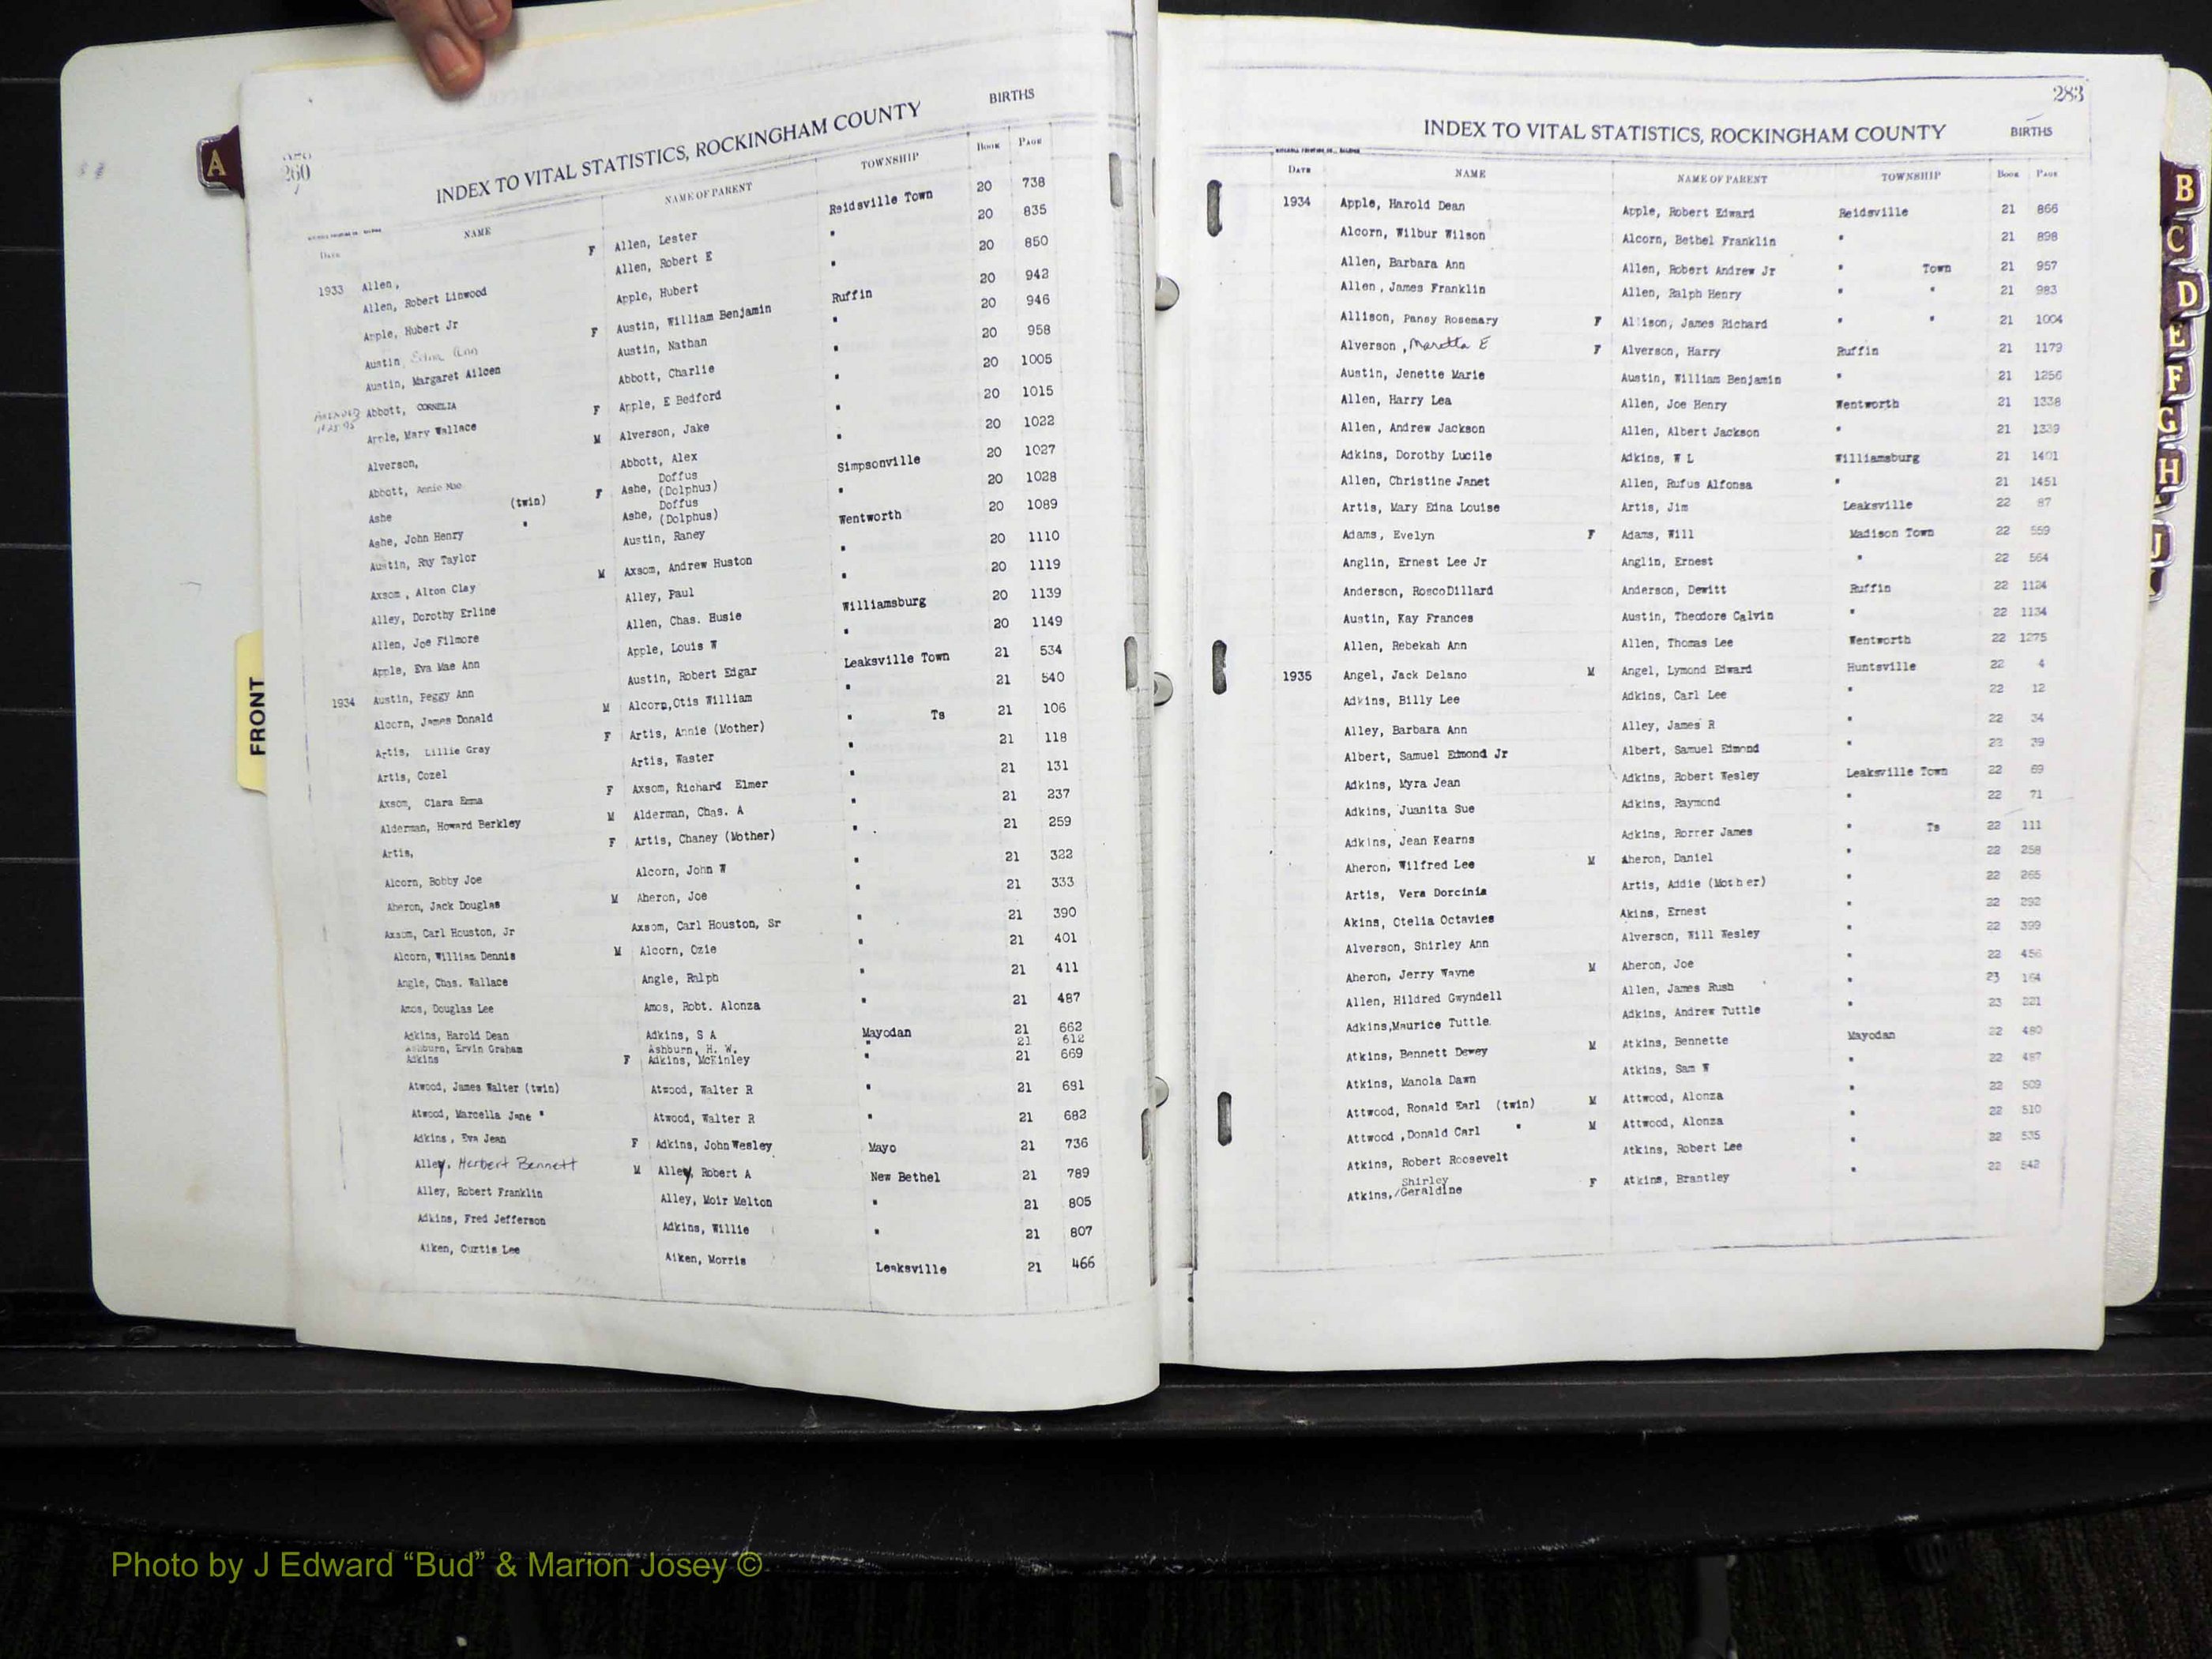 A
260
INDEX TO VITAL STATISTICS, ROCKINGHAM COUNTY BIRTHS
Date NAME NAME OF PARENT TOWNSHIP Book Page
1933 Allen, F Allen, Lester Reidsville Town 20 738
Allen, Robert Linwood Allen, Robert E " 20 835
Apple, Hubert Jr Apple, Hubert " 20 850
Austin Edna Ann F Austin, William Benjamin Ruffin 20 942
Austin, Margaret Aileen Austin, Nathan " 20 946
Abbott, CORNELIA Abbott, Charlie " 20 958
Apple, Mary Wallace F Apple, E Bedford " 20 1005
Alverson, M Alverson, Jake " 20 1015
Abbott, Annie Mae Abbott, Alex " 20 1022
Ashe (twin) F Ashe, Doffus (Dolphus) Simpsonville 20 1027
Ashe, John Henry " Ashe, Doffus (Dolphus) " 20 1028
Austin, Ray Taylor Austin, Raney Wentworth 20 1089
Axsom, Alton Clay M Axsom, Andrew Huston " 20 1110
Alley, Dorothy Erline Alley, Paul " 20 1119
Allen, Joe Filmore Allen, Chas. Husie Williamsburg 20 1139
Apple, Eva Mae Ann Apple, Louis W " 20 1149
1934 Austin, Peggy Ann Austin, Robert Edgar Leaksville Town 21 534
Alcorn, James Donald M Alcorn, Otis William " 21 540
Artis, Lillie Gray F Artis, Annie (Mother) " Ts 21 106
Artis, Cozel Artis, Waster " 21 118
Axsom, Clara Emma F Axsom, Richard Elmer " 21 131
Alderman, Howard Berkley M Alderman, Chas. A " 21 237
Artis, F Artis, Chaney (Mother) " 21 259
Alcorn, Bobby Joe Alcorn, John W " 21 322
Aheron, Jack Douglas M Aheron, Joe " 21 333
Axsom, Carl Houston, Jr Axsom, Carl Houston, Sr " 21 390
Alcorn, William Dennis M Alcorn, Ozie " 21 401
Angle, Chas. Wallace Angle, Ralph " 21 411
Amos, Douglas Lee Amos, Robt. Alonza " 21 487
Adkins, Harold Dean Adkins, S A Mayodan 21 662
Ashburn, Ervin Graham Ashburn, H. W. " 21 612
Adkins F Adkins, McKinley " 21 669
Atwood, James Walter (twin) Atwood, Walter R " 21 681
Atwood, Marcella Jane " Atwood, Walter R " 21 682
Adkins, Eva Jean F Adkins, John Wesley Mayo 21 736
Alley, Herbert Bennett M Alley, Robert A New Bethel 21 789
Alley, Robert Franklin Alley, Moir Melton " 21 805
Adkins, Fred Jefferson Adkins, Willie " 21 807
Aiken, Curtis Lee Aiken, Morris Leaksville 21 466
FRONT
283
INDEX TO VITAL STATISTICS, ROCKINGHAM COUNTY BIRTHS
Date NAME NAME OF PARENT TOWNSHIP Book Page
1934 Apple, Harold Dean Apple, Robert Edward Reidsville 21 866
Alcorn, Wilbur Wilson Alcorn, Bethel Franklin " 21 898
Allen, Barbara Ann Allen, Robert Andrew Jr " Town 21 957
Allen, James Franklin Allen, Ralph Henry " " 21 983
Allison, Pansy Rosemary F Allison, James Richard " " 21 1004
Alverson, Maretta E F Alverson, Harry Ruffin 21 1179
Austin, Jenette Marie Austin, William Benjamin " 21 1256
Allen, Harry Lea Allen, Joe Henry Wentworth 21 1338
Allen, Andrew Jackson Allen, Albert Jackson " 21 1339
Adkins, Dorothy Lucile Adkins, W L Williamsburg 21 1401
Allen, Christine Janet Allen, Rufus Alfonsa " 21 1451
Artis, Mary Edna Louise Artis, Jim Leaksville 22 87
Adams, Evelyn F Adams, Will Madison Town 22 559
Anglin, Ernest Lee Jr Anglin, Ernest " 22 564
Anderson, RoscoDillard Anderson, Dewitt Ruffin 22 1124
Austin, Kay Frances Austin, Theodore Calvin " 22 1134
Allen, Rebekah Ann Allen, Thomas Lee Wentworth 22 1275
1935 Angel, Jack Delano M Angel, Lymond Edward Huntsville 22 4
Adkins, Billy Lee Adkins, Carl Lee " 22 12
Alley, Barbara Ann Alley, James R " 22 34
Albert, Samuel Edmond Jr Albert, Samuel Edmond " 22 39
Adkins, Myra Jean Adkins, Robert Wesley Leaksville Town 22 69
Adkins, Juanita Sue Adkins, Raymond " 22 71
Adkins, Jean Kearns Adkins, Rorrer James " Ts 22 111
Aheron, Wilfred Lee M Aheron, Daniel " 22 258
Artis, Vera Dorcinia Artis, Addie (Mother) " 22 265
Akins, Otelia Octavies Akins, Ernest " 22 292
Alverson, Shirley Ann Alverson, Will Wesley " 22 399
Aheron, Jerry Wayne M Aheron, Joe " 22 456
Allen, Hildred Gwyndell Allen, James Rush " 23 164
Adkins, Maurice Tuttle Adkins, Andrew Tuttle " 23 221
Atkins, Bennett Dewey M Atkins, Bennette Mayodan 22 480
Atkins, Manola Dawn Atkins, Sam W " 22 487
Attwood, Ronald Earl (twin) M Attwood, Alonza " 22 509
Attwood, Donald Carl " M Attwood, Alonza " 22 510
Atkins, Robert Roosevelt Atkins, Robert Lee " 22 535
Atkins, /Shirley Geraldine F Atkins, Brantley " 22 542
B
C
D
E
F
G
H
Photo by J Edward “Bud” & Marion Josey ©